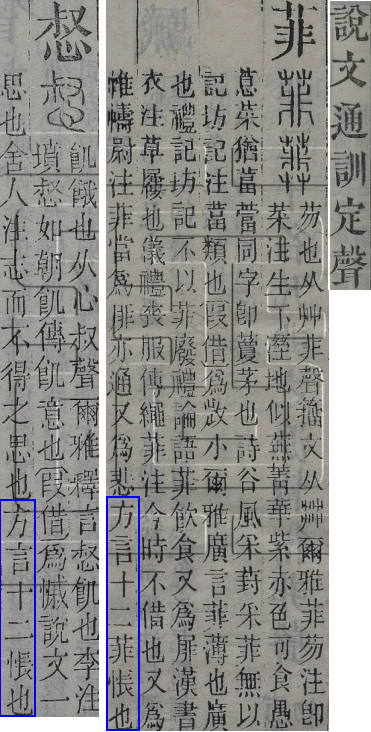 說文通訓定聲
菲
芴也从艸菲聲籒文从茻爾雅菲芴注卽
菜注生下溼地似蕪菁華紫赤色可食愚
蒠菜猶葍同字卽藑茅也詩谷風采葑采菲無以
記坊記注葍類也叚借爲小爾雅廣言菲薄也廣
也禮記坊記不以菲廢禮論語菲飲食又爲屝漢書
衣注草屨也儀禮喪服傳繩菲注今時不借也又爲
帷幬尉注菲當爲厞亦通又爲悲方言十二菲悵也
惄
飢餓也从心叔聲爾雅釋言惄飢也李注
墳惄如朝飢傳飢意也叚借爲慽說文一
思也舍人注志而不得之思也方言十二悵也